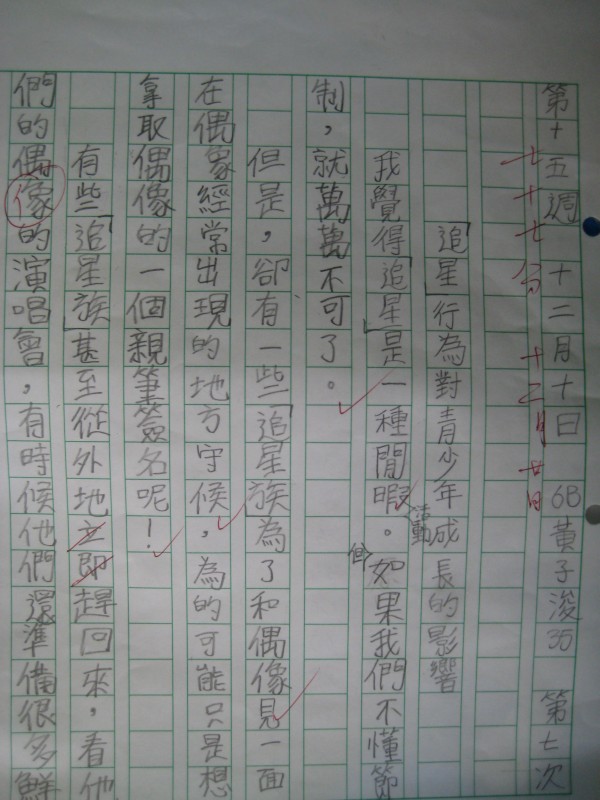 第十五週 十二月十日 6B 黃子浚 35 第七次
七十七分 十二月廿日
「追星」行為對青少年成長的影響
我覺得「追星」是一種閒暇活動。但如果我們不懂節
制，就萬萬不可了。
但是，卻有一些「追星族為了和偶像見一面
在偶象經常出現的地方守候，為的可能只是想
拿取偶像的一個親筆簽名呢！
有些「追星族」甚至從外地立即趕回來，看他
們的偶像的演唱會，有時候他們還準備很多鮮